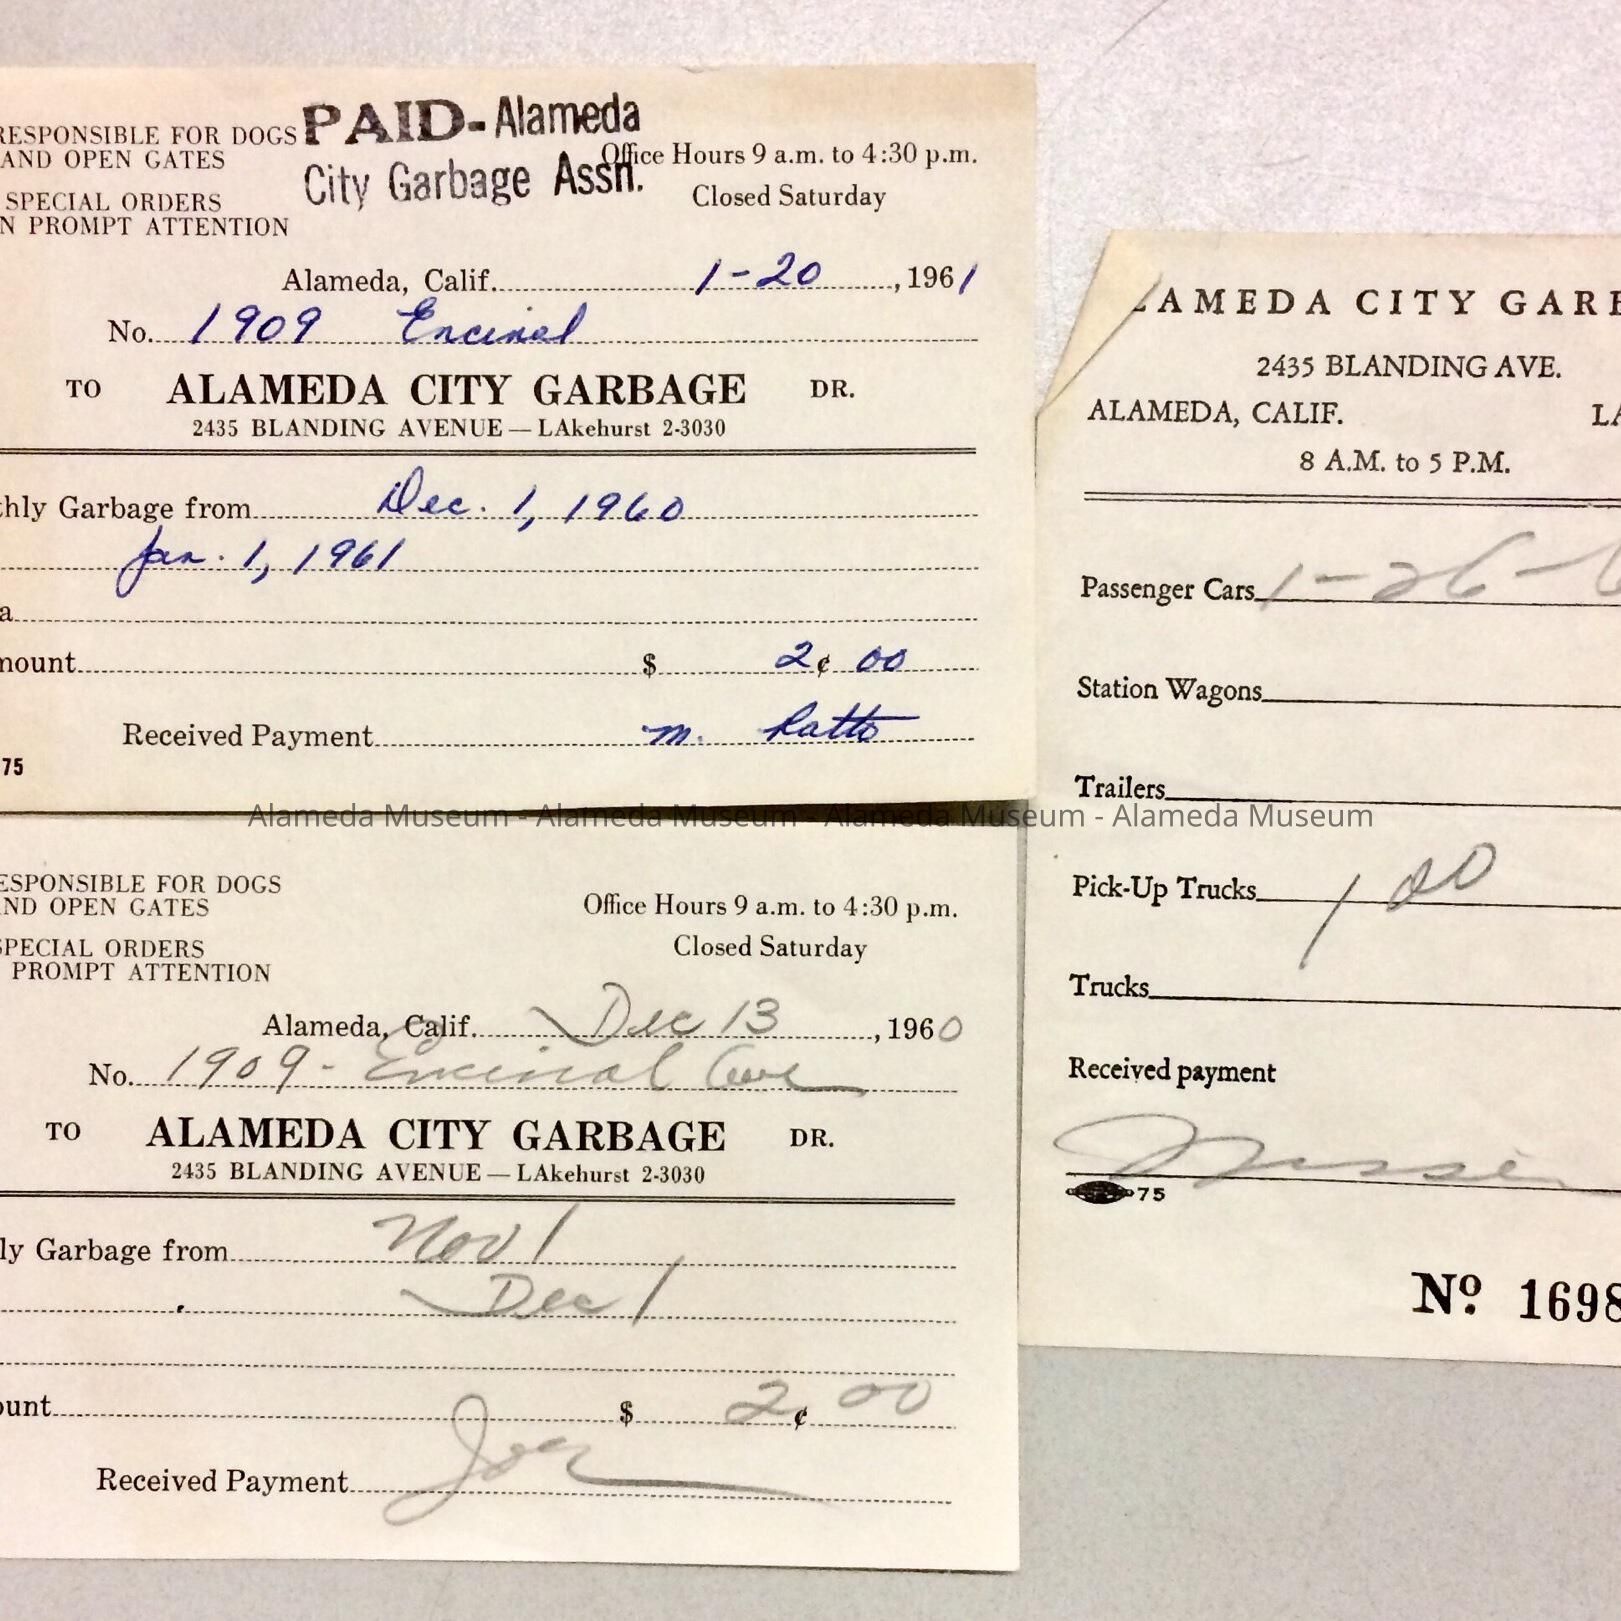 RESPONSIBLE FOR DOGS
AND OPEN GATES
SPECIAL ORDERS
N PROMPT ATTENTION
PAID-Alameda
City Garbage Assn.
Office Hours 9 a.m. to 4:30 p.m.
Closed Saturday
Alameda, Calif. 1-20, 1961
No. 1909 Encinal
TO ALAMEDA CITY GARBAGE DR.
2435 BLANDING AVENUE — LAkehurst 2-3030
thly Garbage from Dec. 1, 1960
Jan. 1, 1961
a
mount $ 2 ¢ 00
Received Payment m. Ratto
75
Alameda Museum - Alameda Museum - Alameda Museum - Alameda Museum
ESPONSIBLE FOR DOGS
ND OPEN GATES
SPECIAL ORDERS
PROMPT ATTENTION
Office Hours 9 a.m. to 4:30 p.m.
Closed Saturday
Alameda, Calif. Dec 13, 1960
No. 1909 - Encinal Ave
TO ALAMEDA CITY GARBAGE DR.
2435 BLANDING AVENUE — LAkehurst 2-3030
ly Garbage from Nov 1
Dec 1
ount $ 2 ¢ 00
Received Payment Joe
LAMEDA CITY GARB
2435 BLANDING AVE.
ALAMEDA, CALIF. LA
8 A.M. to 5 P.M.
Passenger Cars 1-26-6
Station Wagons
Trailers
Pick-Up Trucks 1 00
Trucks
Received payment
75
No. 1698